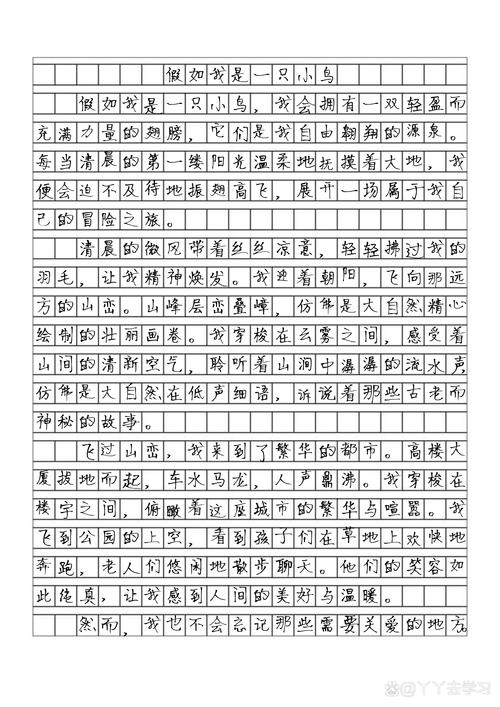 假如我是一只小鸟
假如我是一只小鸟，我会拥有一双轻盈而
充满力量的翅膀，它们是我自由翱翔的源泉。
每当清晨的第一缕阳光温柔地抚摸着大地，我
便会迫不及待地振翅高飞，展开一场属于我自
己的冒险之旅。
清晨的微风带着丝丝凉意，轻轻拂过我的
羽毛，让我精神焕发。我迎着朝阳，飞向那远
方的山峦。山峰层峦叠嶂，仿佛是大自然精心
绘制的壮丽画卷。我穿梭在云雾之间，感受着
山间的清新空气，聆听着山涧中潺潺的流水声，
仿佛是大自然在低声细语，诉说着那些古老而
神秘的故事。
飞过山峦，我来到了繁华的都市。高楼大
厦拔地而起，车水马龙，人声鼎沸。我穿梭在
楼宇之间，俯瞰着这座城市的繁华与喧嚣。我
飞到公园的上空，看到孩子们在草地上欢快地
奔跑，老人们悠闲地散步聊天。他们的笑容如
此纯真，让我感到人间的美好与温暖。
然而，我也不会忘记那些需要关爱的地方。
@丫丫去学习